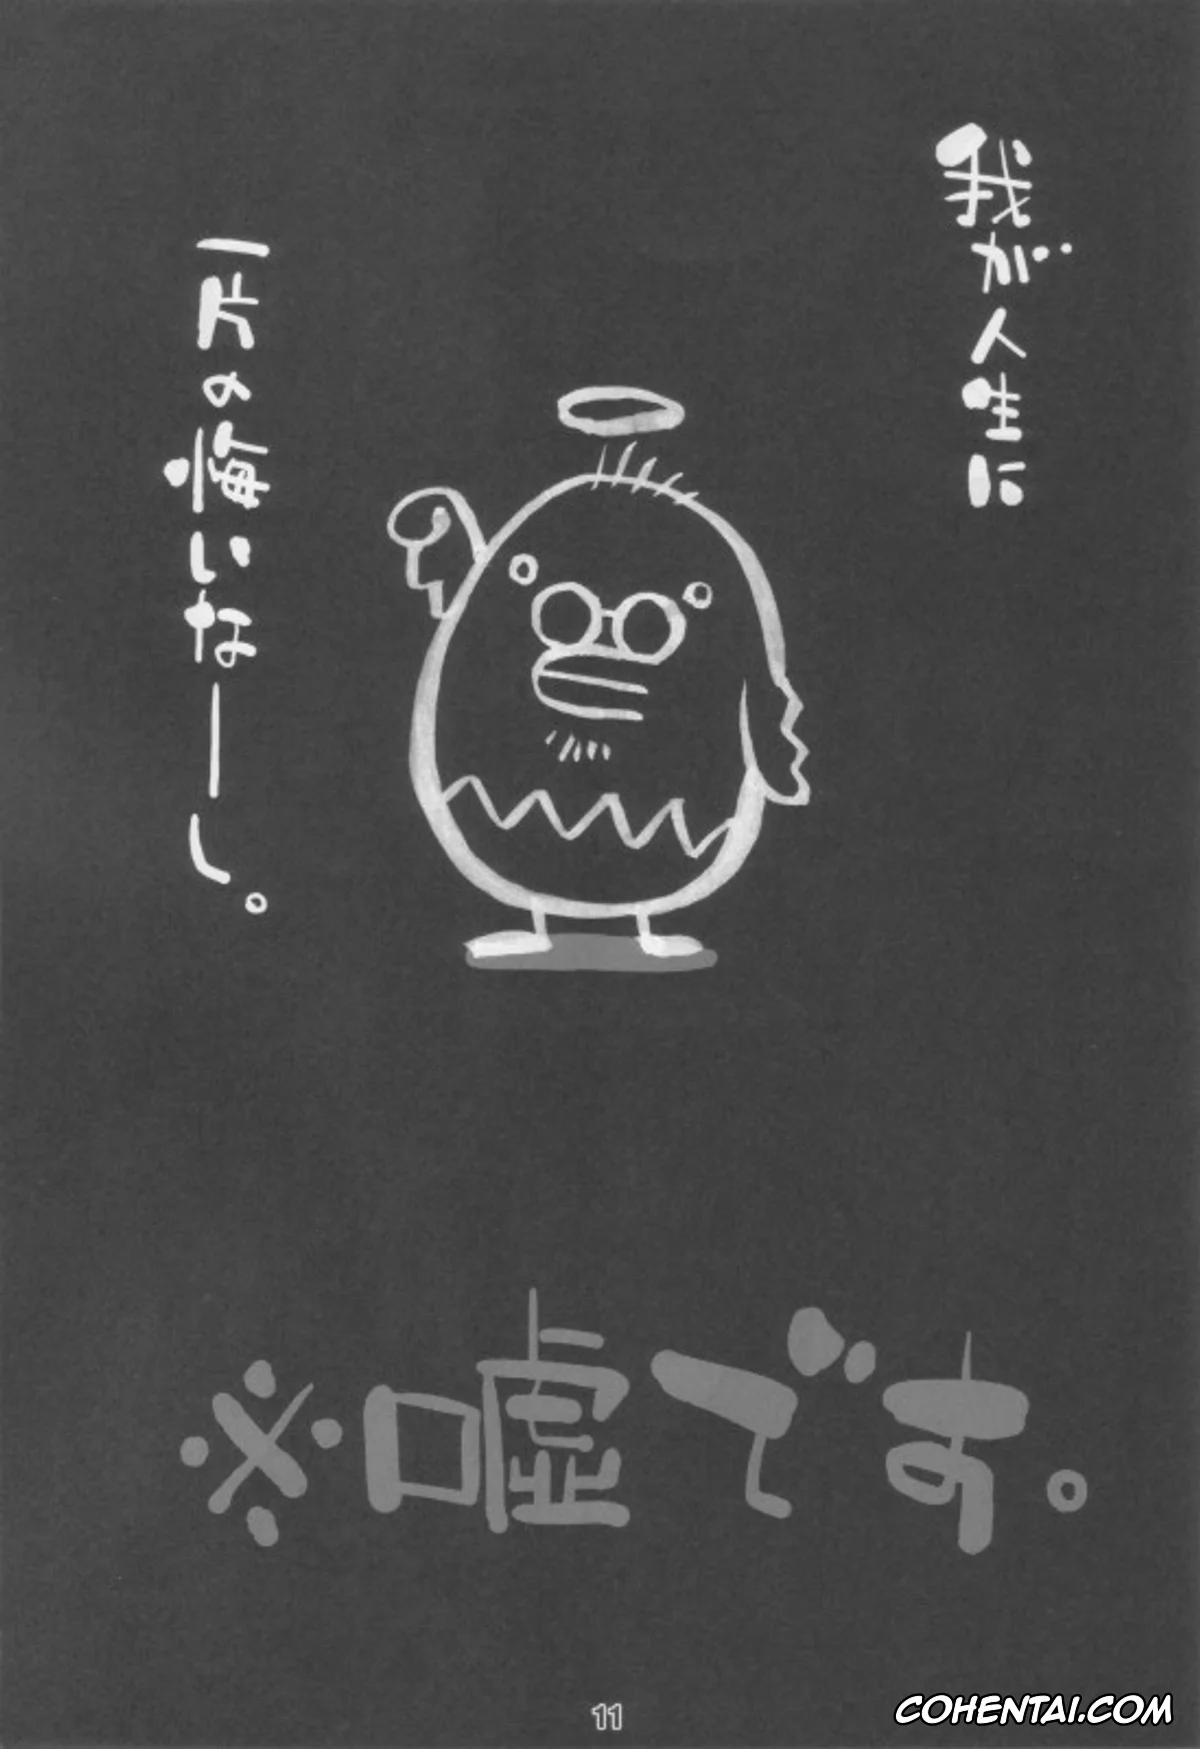 我が人生に
一片の悔いなーし。
※嘘です。
11
COHENTAI.COM